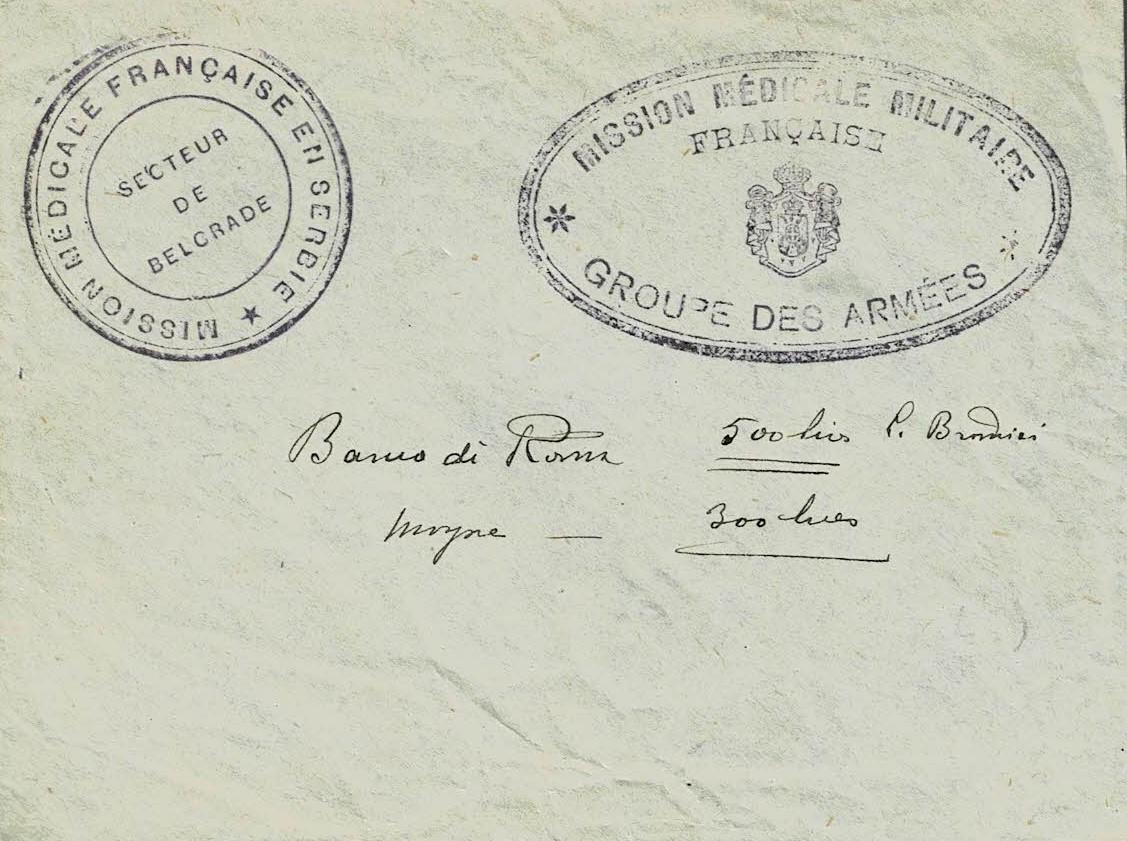 MISSION MÉDICALE FRANÇAISE EN SERBIE
SECTEUR
DE
BELGRADE
MISSION MÉDICALE MILITAIRE
FRANÇAISE
GROUPE DES ARMÉES
Banco di Roma 500 lires
300 lires